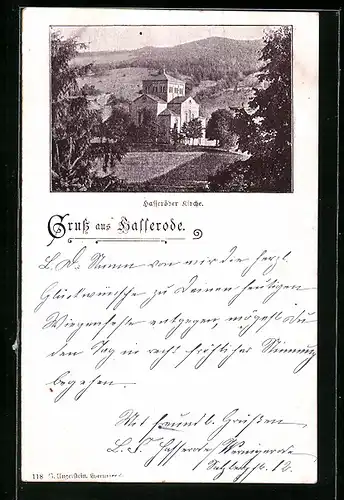 Hasseröder Kirche.
Gruß aus Hasserode.
L. D. Nimm von mir die herzl.
Glückwünsche zu Deinem heutigen
Wiegenfeste entgegen, mögest Du
den Tag in recht fröhlicher Stimmung
begehen.
Mit freundl. Grüßen
L. F. Hasserode Wernigerode
12.
118